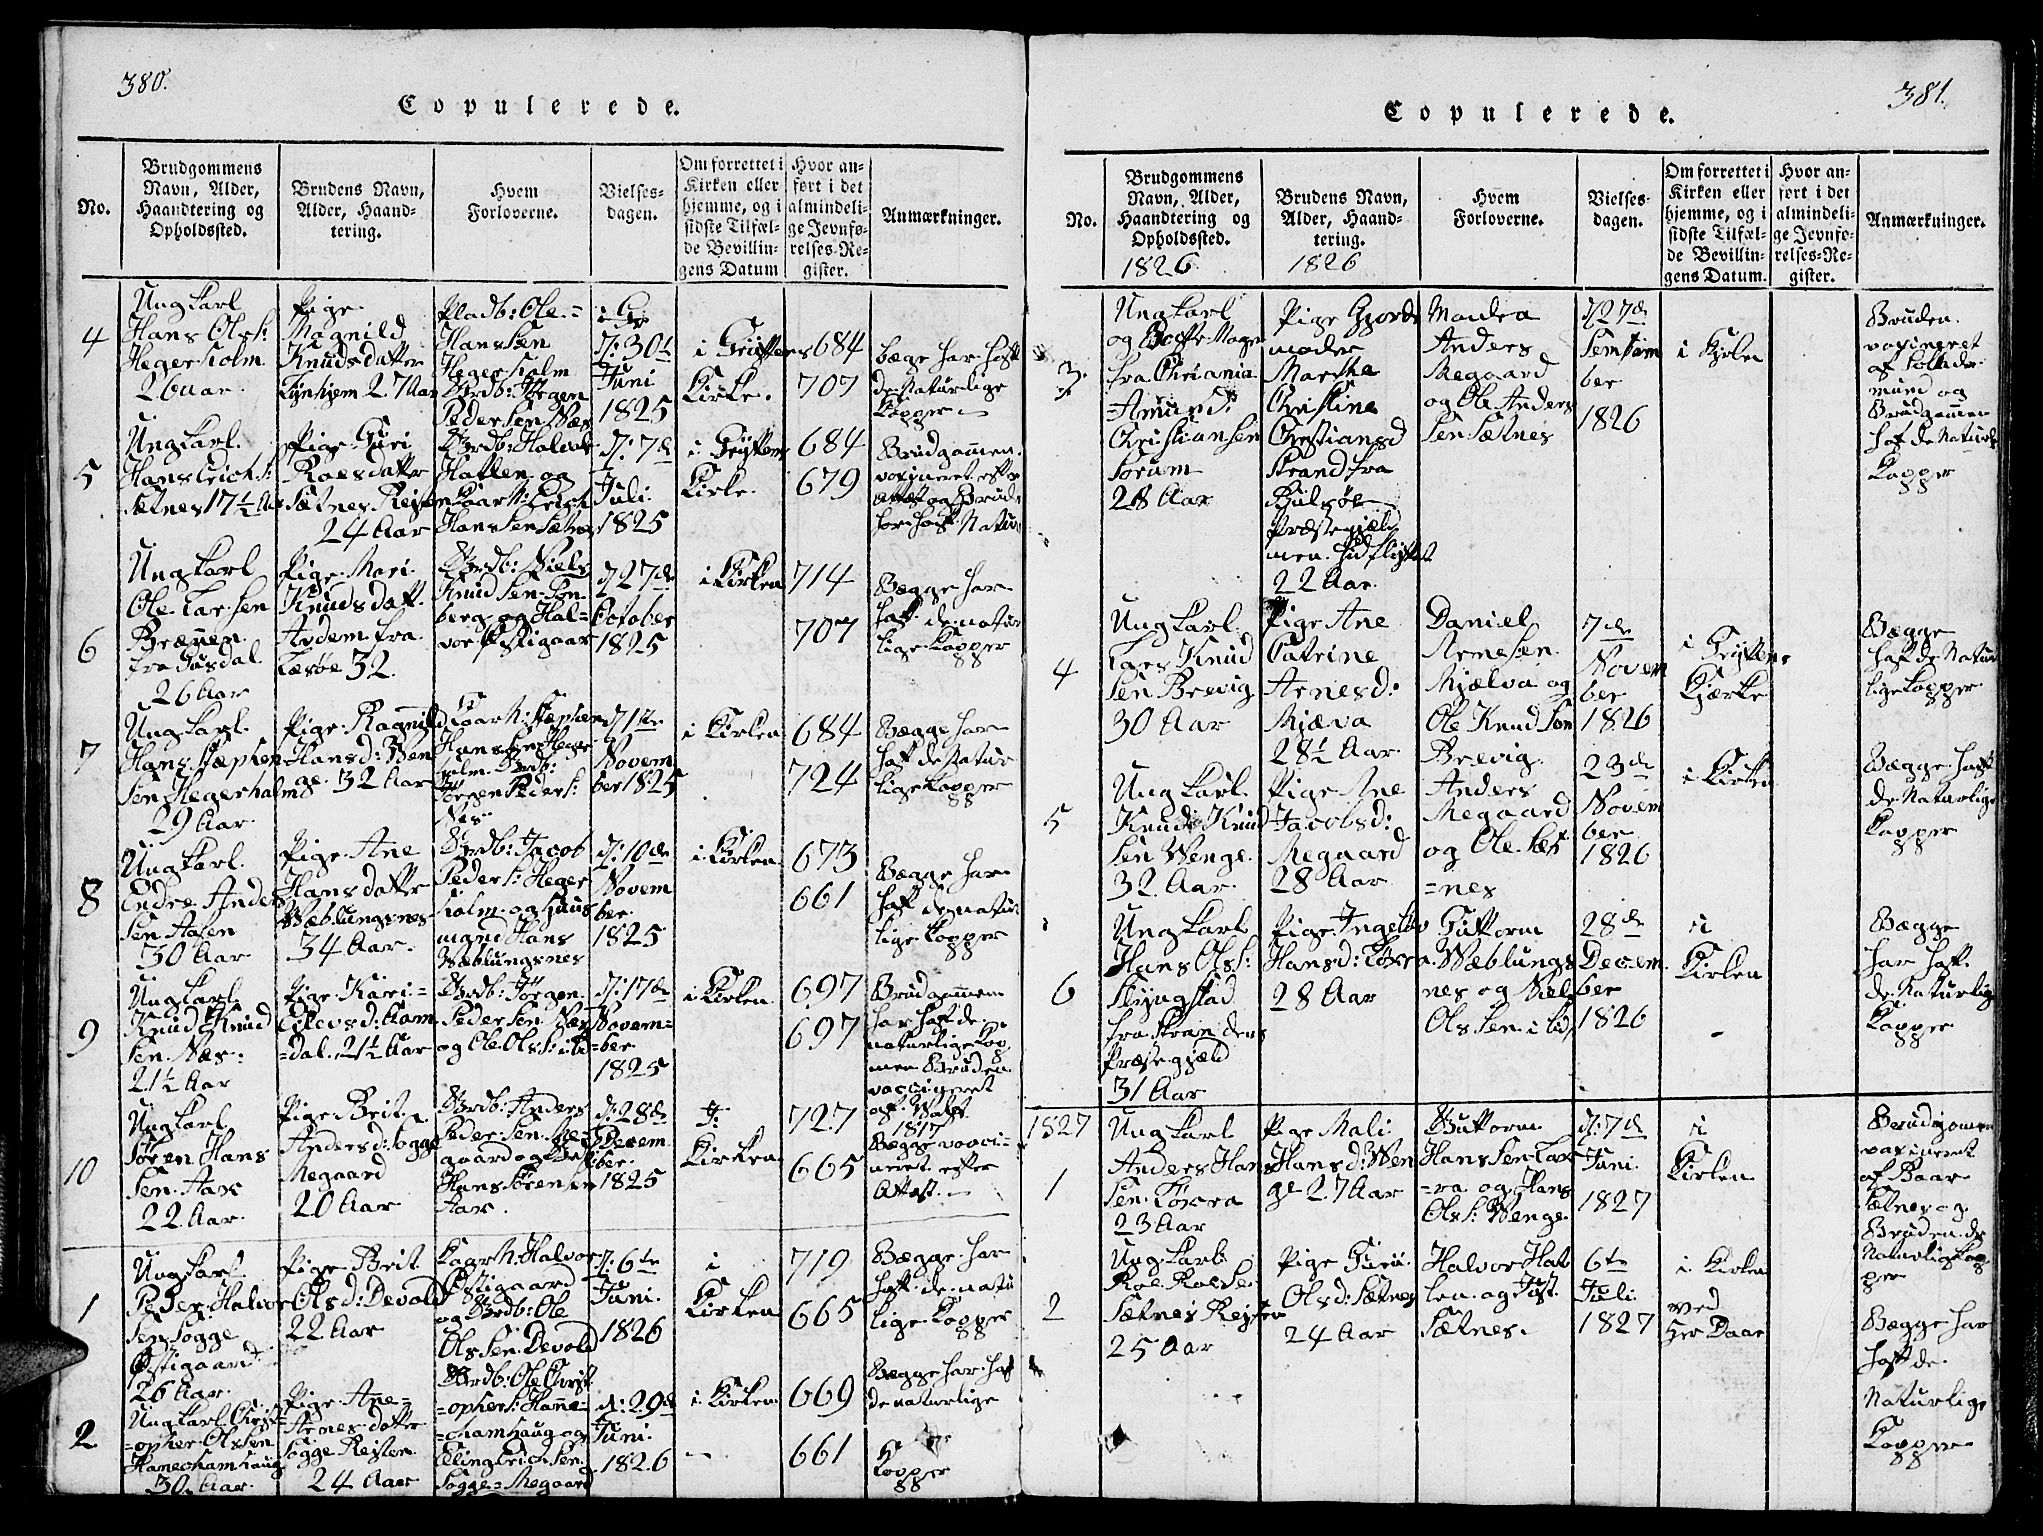 380.
Copulerede.
No.
Brudgommens
Navn, Alder,
Haandtering og
Opholdssted.
Brudens Navn,
Alder, Haand-
tering.
Hvem
Forloverne.
Vielses-
dagen.
Om forrettet i
Kirken eller
hjemme, og i
sidste Tilfæl-
de Bevillin-
gens Datum
Hvor an-
ført i det
almindeli-
ge Jevnfø-
relses-Re-
gister.
Anmærkninger.
4
Ungkarl
Hans Ols:
Hegerholm
26 aar.
Pige
Magnild
Knudsdatter
27 Aar
Pladb: Ole
Hansen
Hegerholm
Jørgen
Pedersen Næs
d: 30t
Juni
1825
i Gryttens
Kirke.
684
707
bæge har haft
de Naturlige
Kopper
5
Ungkarl.
Hans Erichs:
Sætnes 17½ Aar
Pige Guri
Roesdatter
Sætnes Reisten
24 Aar
Grdb: Halvor
Hatlen og
Kaarm: Erich
Hansen Sætnes
d: 7de
Juli
1825
i Grytten
Kirke.
684
679
Brudgommen
vaxineret efter
attest og Brud
har haft Natur
6
Ungkarl
Ole Larsen
fra Gusdal
26 Aar
Pige Mari
Knudsdatt.
Ardem fra
Læsøe 32
Grdb: Niels
Knudsen Søn
berg og Hal-
vor Østigaar
d 27de
October
1825
i Kirken
714
707
Begge har
haft de natur
lige Kopper
7
Ungkarl.
Hans Stephen
sen Hegerholm
29 Aar.
Pige Ragnild
Hansd: Wen
ge. 32 Aar
Kaarm: Stephen
Hansen Heger
holm. Grdb:
Jørgen Peders:
Næs
d 1te
Novem
ber 1825
i Kirken
684
724
Begge har
haft de Natur
lige Kopper
8
Ungkarl.
Endre Anders
sen Aasen
30 Aar
Pige Ane
Hansdatter
Wæblungsnes
34 Aar.
Grdb: Jacob
Peders: Heger
holm og Huus
mand Hans
Wæblungsnes
d: 10de
Novem
ber
1825
i Kirken
673
661
Begge har
haft de natur
lige Kopper
9
Ungkarl
Knud Knud
sen Næs
21½ Aar
Pige Kari
dal. 21½ Aar
Grdb: Jørgen
Pedersen Næs
og Ole Ols: i Lid
d: 17de
Novem=
=ber
1825
i Kirken
697
697
Brudgommen
har haft de
naturlige Kop
men Bruden
vaccineret
1817
10
Ungkarl
Søren Hans
sen Aar
22 Aar
Pige Brit
Andersd: Sogge
Megaard
20 Aar
Grdb: Anders
Pedersen Me=
gaard og
Hans Sørensen
Aar.
d: 28de
Decem
ber
1825
I
Kirken
727
665
Begge vacci=
neret efter
Attest.
1
Ungkarl
Peder Halvor
sen Sogge
Østigaard
26 Aar.
Pige Brit
Olsd: Devold
22 Aar
Kaarm: Halvor
Østigaard
og Grdb: Ole
Olssen Devold
d: 6te
Juni.
1826
i
Kirken
719
665
Begge har
haft de natur
lige Kopper
2
Ungkarl Christ
=opher Olssen
Hanekamhaug
30 Aar.
Pige Ane=
Arnesdatter
Sogge Reisten
24 Aar
Grdb: Ole Christ
=ophers: Hane=
=kamhaug og
Elling Erichsen
Sogge=Megaard
d: 29de
Juni.
1826
i Kirken
669
661
Begge har haft
de naturlige
Kopper
381.
Copulerede.
No.
Brudgommens
Navn, Alder,
Haandtering og
Opholdssted.
1826
Brudens Navn,
Alder, Haand-
tering.
1826
Hvem
Forloverne.
Vielses-
dagen.
Om forrettet i
Kirken eller
hjemme, og i
sidste Tilfæl-
de Bevillin-
gens Datum.
Hvor an-
ført i det
almindeli-
ge Jevnfø-
relses-Re-
gister.
Anmærkninger.
3.
Ungkarl
fra Christiania
Amund
Christiansen
Sorum
28 Aar
Pige Gjord
moder
Marthe
Christine
Christiansd
Strand fra
Præstegjeld
men hidflyttet
22 Aar.
Anders
Megaard
og Ole Anders
sen Sætnes
d 27de
Septem
ber
1826
Bruden
vaxineret
Brudgommen
haft de Naturl
Kopper
4
Ungkarl
Lars Knud
sen Brevig
30 Aar
Pige Ane
Catrine
Arnesd:
Mjæva
28½ Aar
Daniel
Arnesen
Mjælva og
Ole Knudsen
Brevig
7de
Novem
ber
1826
i Gryttens
Kjerke
Begge
haft de Natur
lige Kopper
5
Ungkarl
Knud Knud
sen Wenge
32 Aar
Pige Ane
Jacobsd:
Megaard
28 Aar
Anders
Megaard
og Ole Sæt
=nes
23de
Novem
ber
1826
i Kirken
Begge haft
de Naturlige
Kopper
6
Ungkarl
Hans Ols:
fra Strandens
Præstegjeld
31 Aar
Pige Ingebor
Hansd:
28 Aar
Guttorm
Wæblungs
nes og Niels
Olssen i Lid
28de
Decem
ber
1826
i
Kirken
Begge
har haft
de Naturlige
Kopper
1827
1
Ungkarl
Anders Hans
sen
23 Aar
Pige Mali
Hansd: Wen
ge 27 Aar
Guttorm
Hansen
og Hans
Ols: Wenge
d: 7de
Juni
1827
i
Kirken
Brudgomen
vaxineret
af Baar
Sætnes og
Bruden de
Naturlig Kop
per
2
Ungkarl
Roe Roesse
Sætnes Reisten
25 Aar
Pige Guru
Olsd: Sætnes
24 Aar
Halvor Hat
len og Just
Sætnes.
6te
Juli
1827
i Kirken
ved
Her Daae
Begge har
haft de
Naturlige
Kopper